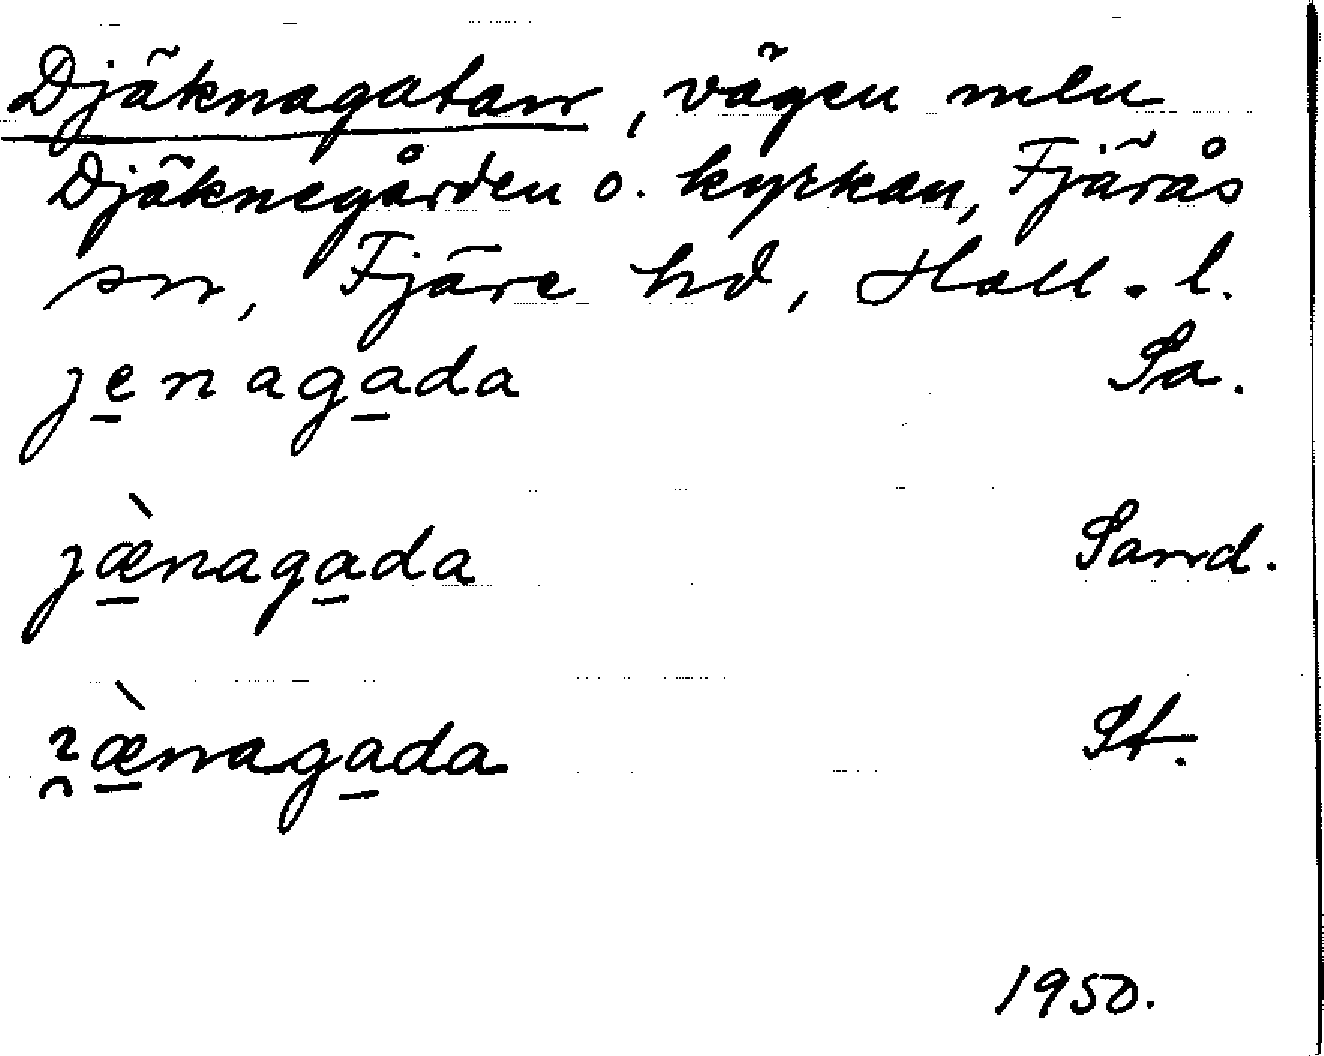 Djäknagatan, vägen mln
Djäknegården o. kyrkan, Fjärås
sn, Fjäre hd, Hall. l.
je̱naga̱da Sa.
jæ̱̀naga̱da Sand.
ɿ̯æ̱̀naga̱da St.
1950.